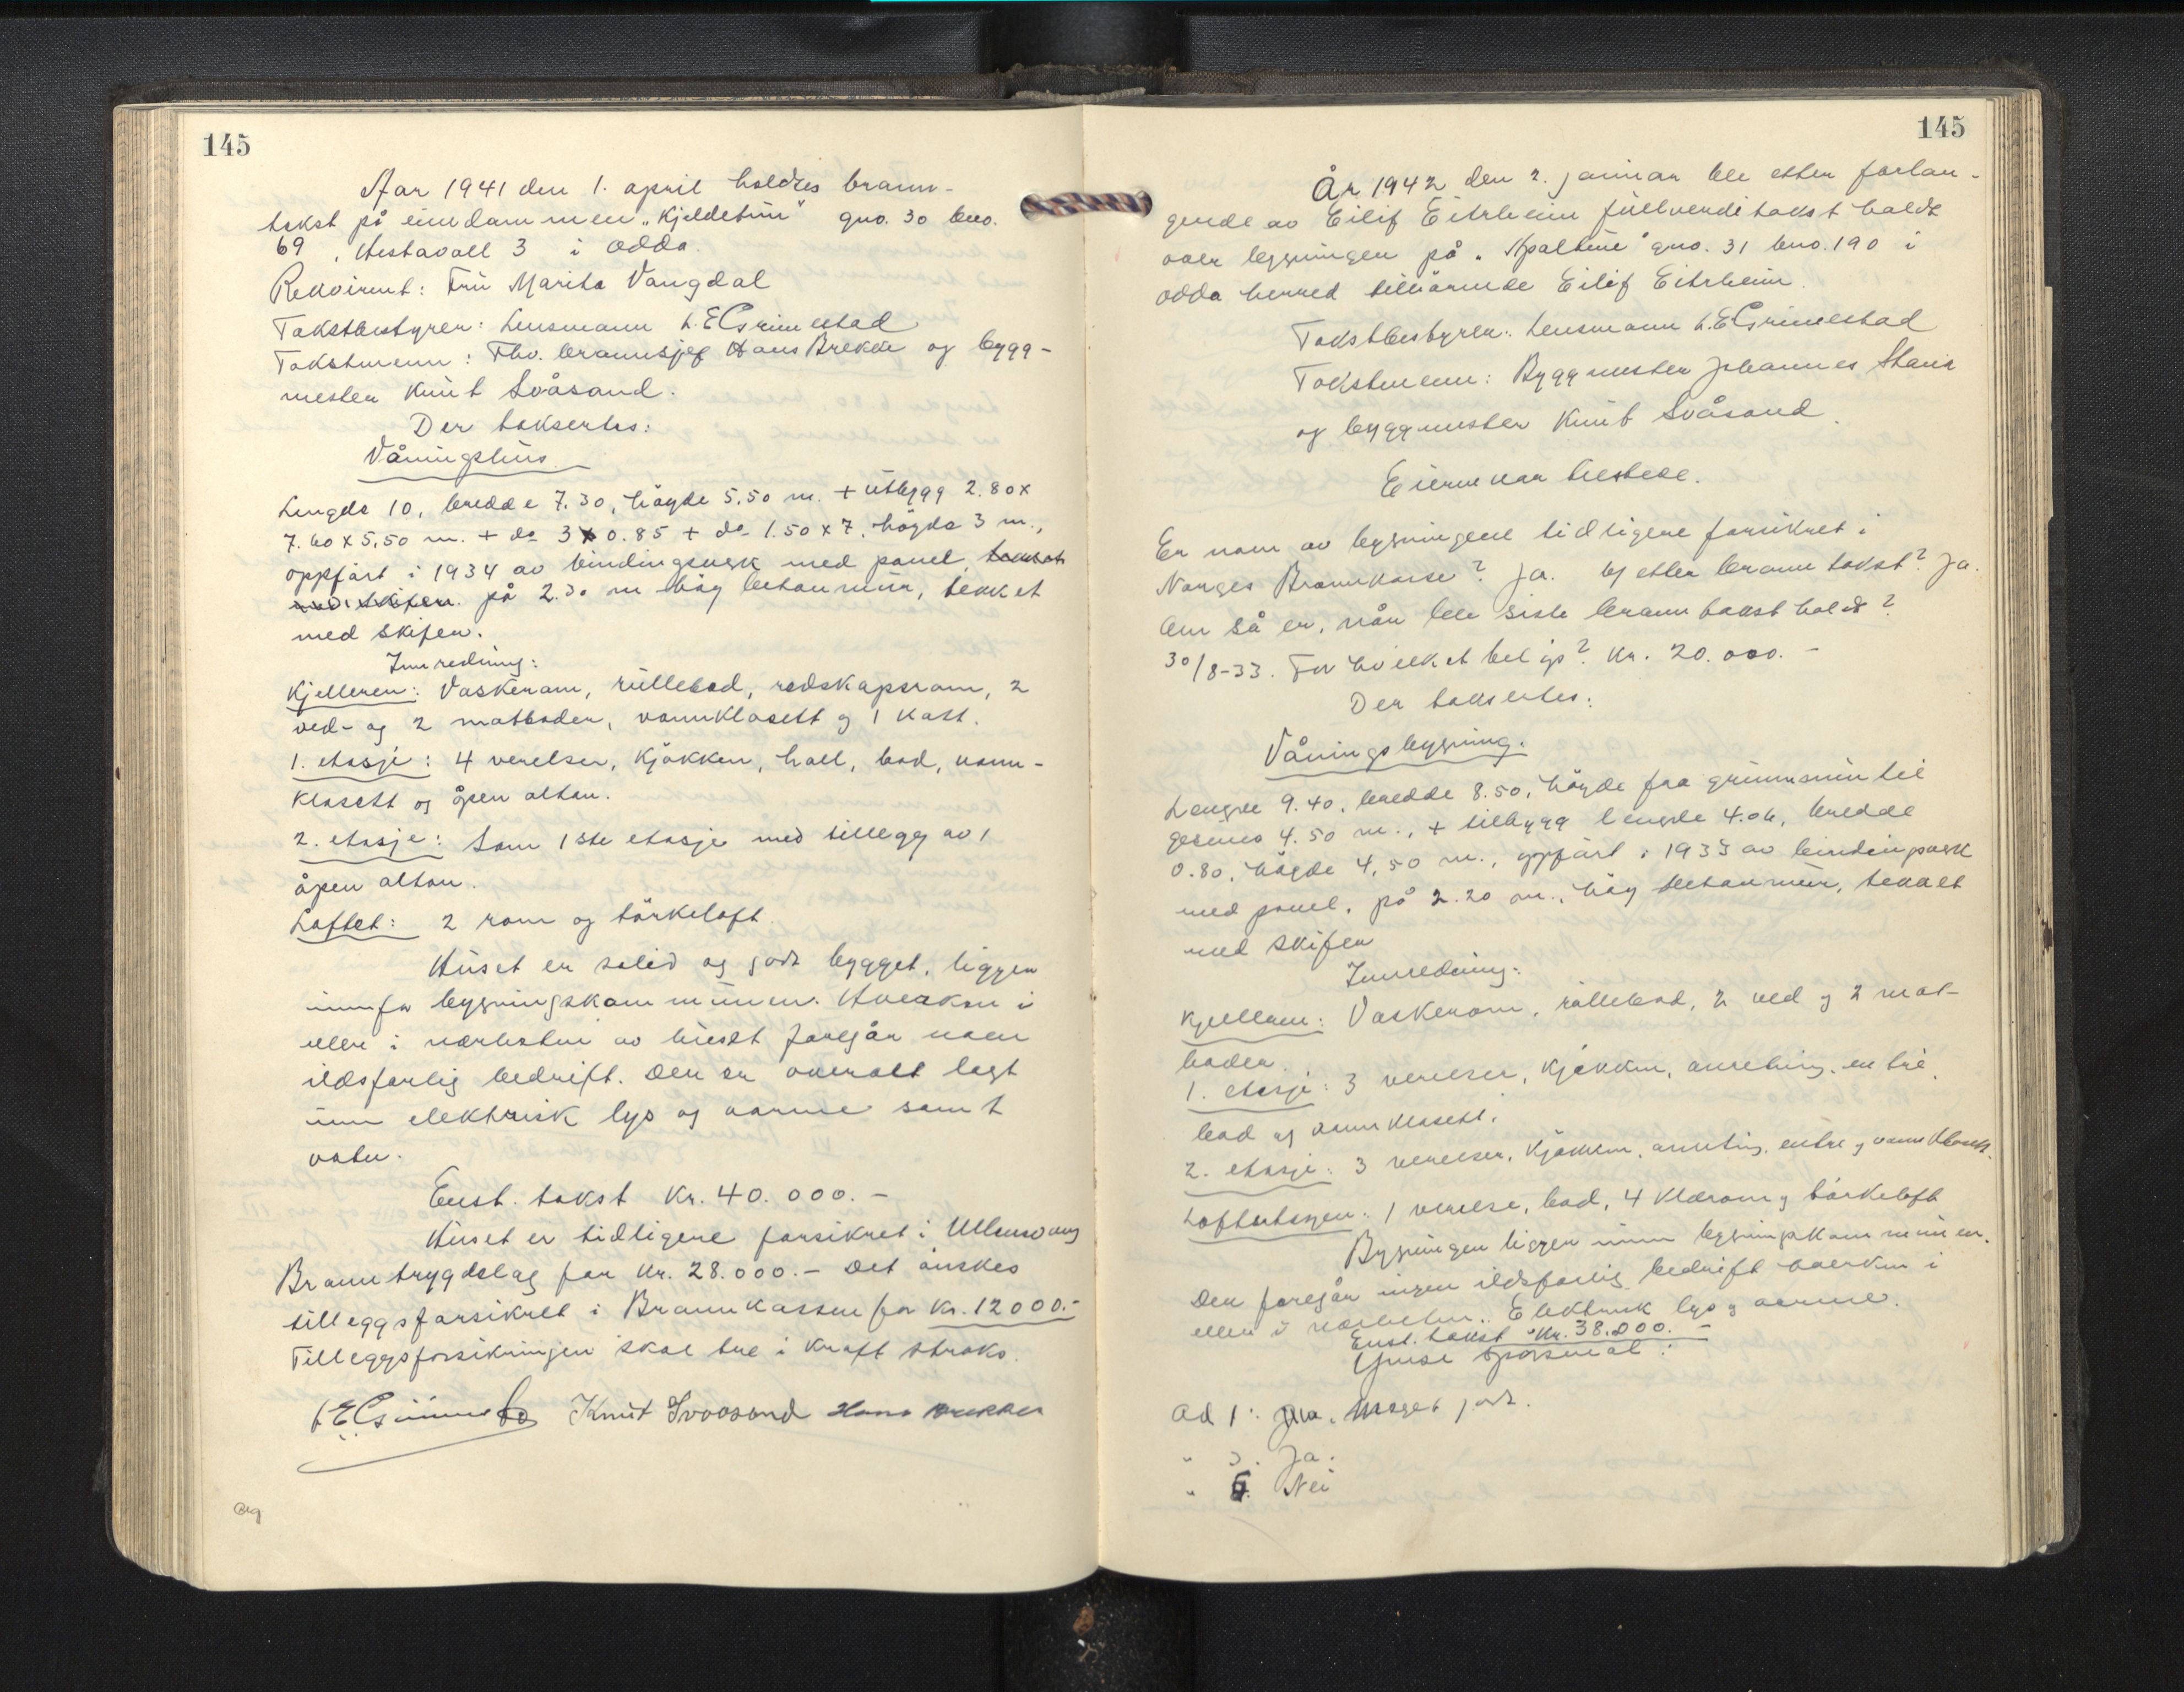 145
Aar 1941 den 1. april holdtes brann-
takst på eiendommen „Kjeldetun" gno. 30 bno.
69, Hestavoll 3 i Odda.
Rekvirent: Fru Marita Vangdal
Takstbestyrer: Lensmann L. E. Grimestad
Takstmenn: Fhv. brannsjef Hans Brekke og bygg-
mester Knut Svåsand.
Der taksertes:
Våningshus
Lengde 10, bredde 7.30, høyde 5.50 m. + utbygg 2.80 x
7.60 x 5.50 m. + do 3 x 0.85 + do 1.50 x 7, høyde 3 m.,
oppført i 1934 av bindingsverk med panel,
på 2.30 m høy betonmur, tekket
med skifer.
Innredning:
Kjelleren: Vaskerom, rullebod, redskapsrom, 2
ved- og 2 matboder, vannklosett og 1 kott.
1. etasje: 4 værelser, kjøkken, hall, bad, vann-
klosett og åpen altan.
2. etasje: Som 1ste etasje med tillegg av 1
åpen altan.
Loftet: 2 rom og tørkeloft.
Huset er solid og godt bygget, ligger
innafor bygningskommunen. Hverken i
eller i nærheten av huset foregår noen
ildsfarlig bedrift. Der er overalt lagt
inn elektrisk lys og varme samt
vatn.
Enst. takst kr. 40.000.-
Huset er tidligere forsikret i Ullensvang
Branntrygdelag for kr. 28.000.- Det ønskes
tilleggsforsikret i Brannkassen for kr. 12000.-
Tilleggsforsikringen skal tre i kraft straks.
L E Grimestad Knut Svoosand Hans Brekke
145
År 1942 den 2. januar ble etter forlan-
gende av Eilif Eitrheim fullverditakst holdt
over bygningen på „Apaltun" gno. 31 bno. 190 i
Odda herred tilhørende Eilif Eitrheim.
Takstbestyrer: Lensmann L. E. Grimestad
Takstmenn: Byggmester Johannes
og byggmester Knut Svåsand.
Eieren var tilstede.
Er noen av bygningene tidligere forsikret i
Norges Brannkasse? Ja. Og etter branntakst? Ja.
Om så er, når ble siste branntakst holdt?
30/8-33. For hvilket beløp? Kr. 20.000.-
Der taksertes:
Våningsbygning.
Lengde 9.40, bredde 8.50, høyde fra grunnmur til
gesims 4.50 m., + tilbygg lengde 4.06, bredde
0.80, høyde 4,50 m., oppført i 1933 av bindingsverk
med panel, på 2.20 m., høy betonmur, tekket
med skifer
Innredning:
Kjelleren: Vaskerom, rullebod, 2 ved og 2 mat-
boder.
1. etasje: 3 værelser, kjøkken, anretning, entré,
bad og vannklosett.
2. etasje: 3 værelser, kjøkken, anretning, entre og vannklosett.
Loftsetasjen: 1 værelse, bod, 4 klærom og tørkeloft
Bygningen ligger innen bygningskommunen.
Der foregår ingen ildsfarlig bedrift hverken i
eller i nærheten. Elektrisk lys og varme.
Enst. takst kr. 38.000.-
Ymse spørsmål:
Ad 1: Meget godt.
" 3. Ja.
" 6. Nei